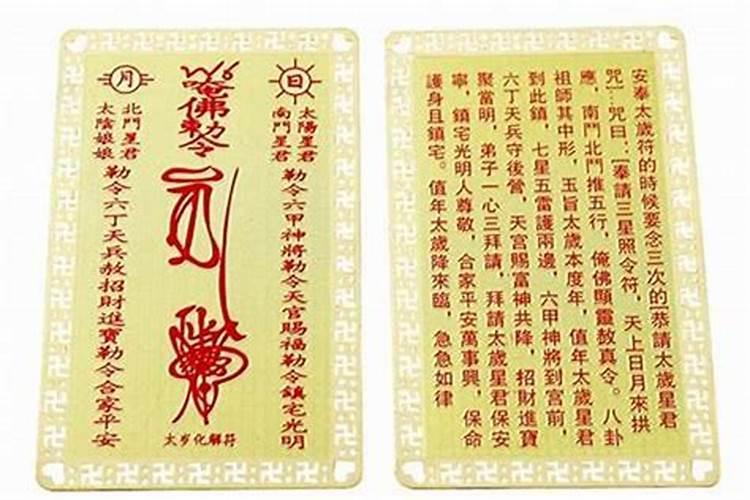 日
太陽星君
南鬥星君
勒令六甲神將勒令天官賜福勒令鎮宅光明
唵佛勅令
太岁化解符
月
北鬥星君
太陰娘娘
勒令六丁天兵赦招財進寶勒令合家平安
安奉太歲符的時候要念三次的[恭請太歲星君
咒]…咒曰：[奉請三星照令符，天上日月來拱
應，南鬥北鬥推五行，俺佛顯靈敖真令。八卦
祖師其中形，玉旨太歲本度年，值年太歲星君
到此鎮，七星五雷護兩邊，六甲神將到宮前，
六丁天兵守後營，天宮賜富神共降，招財進寶
聚當明，弟子一心三拜請，拜請太歲星君保安
寧，鎮宅光明人尊敬，合家平安萬事興，保命
護身且鎮宅。值年太歲降來臨，急急如律